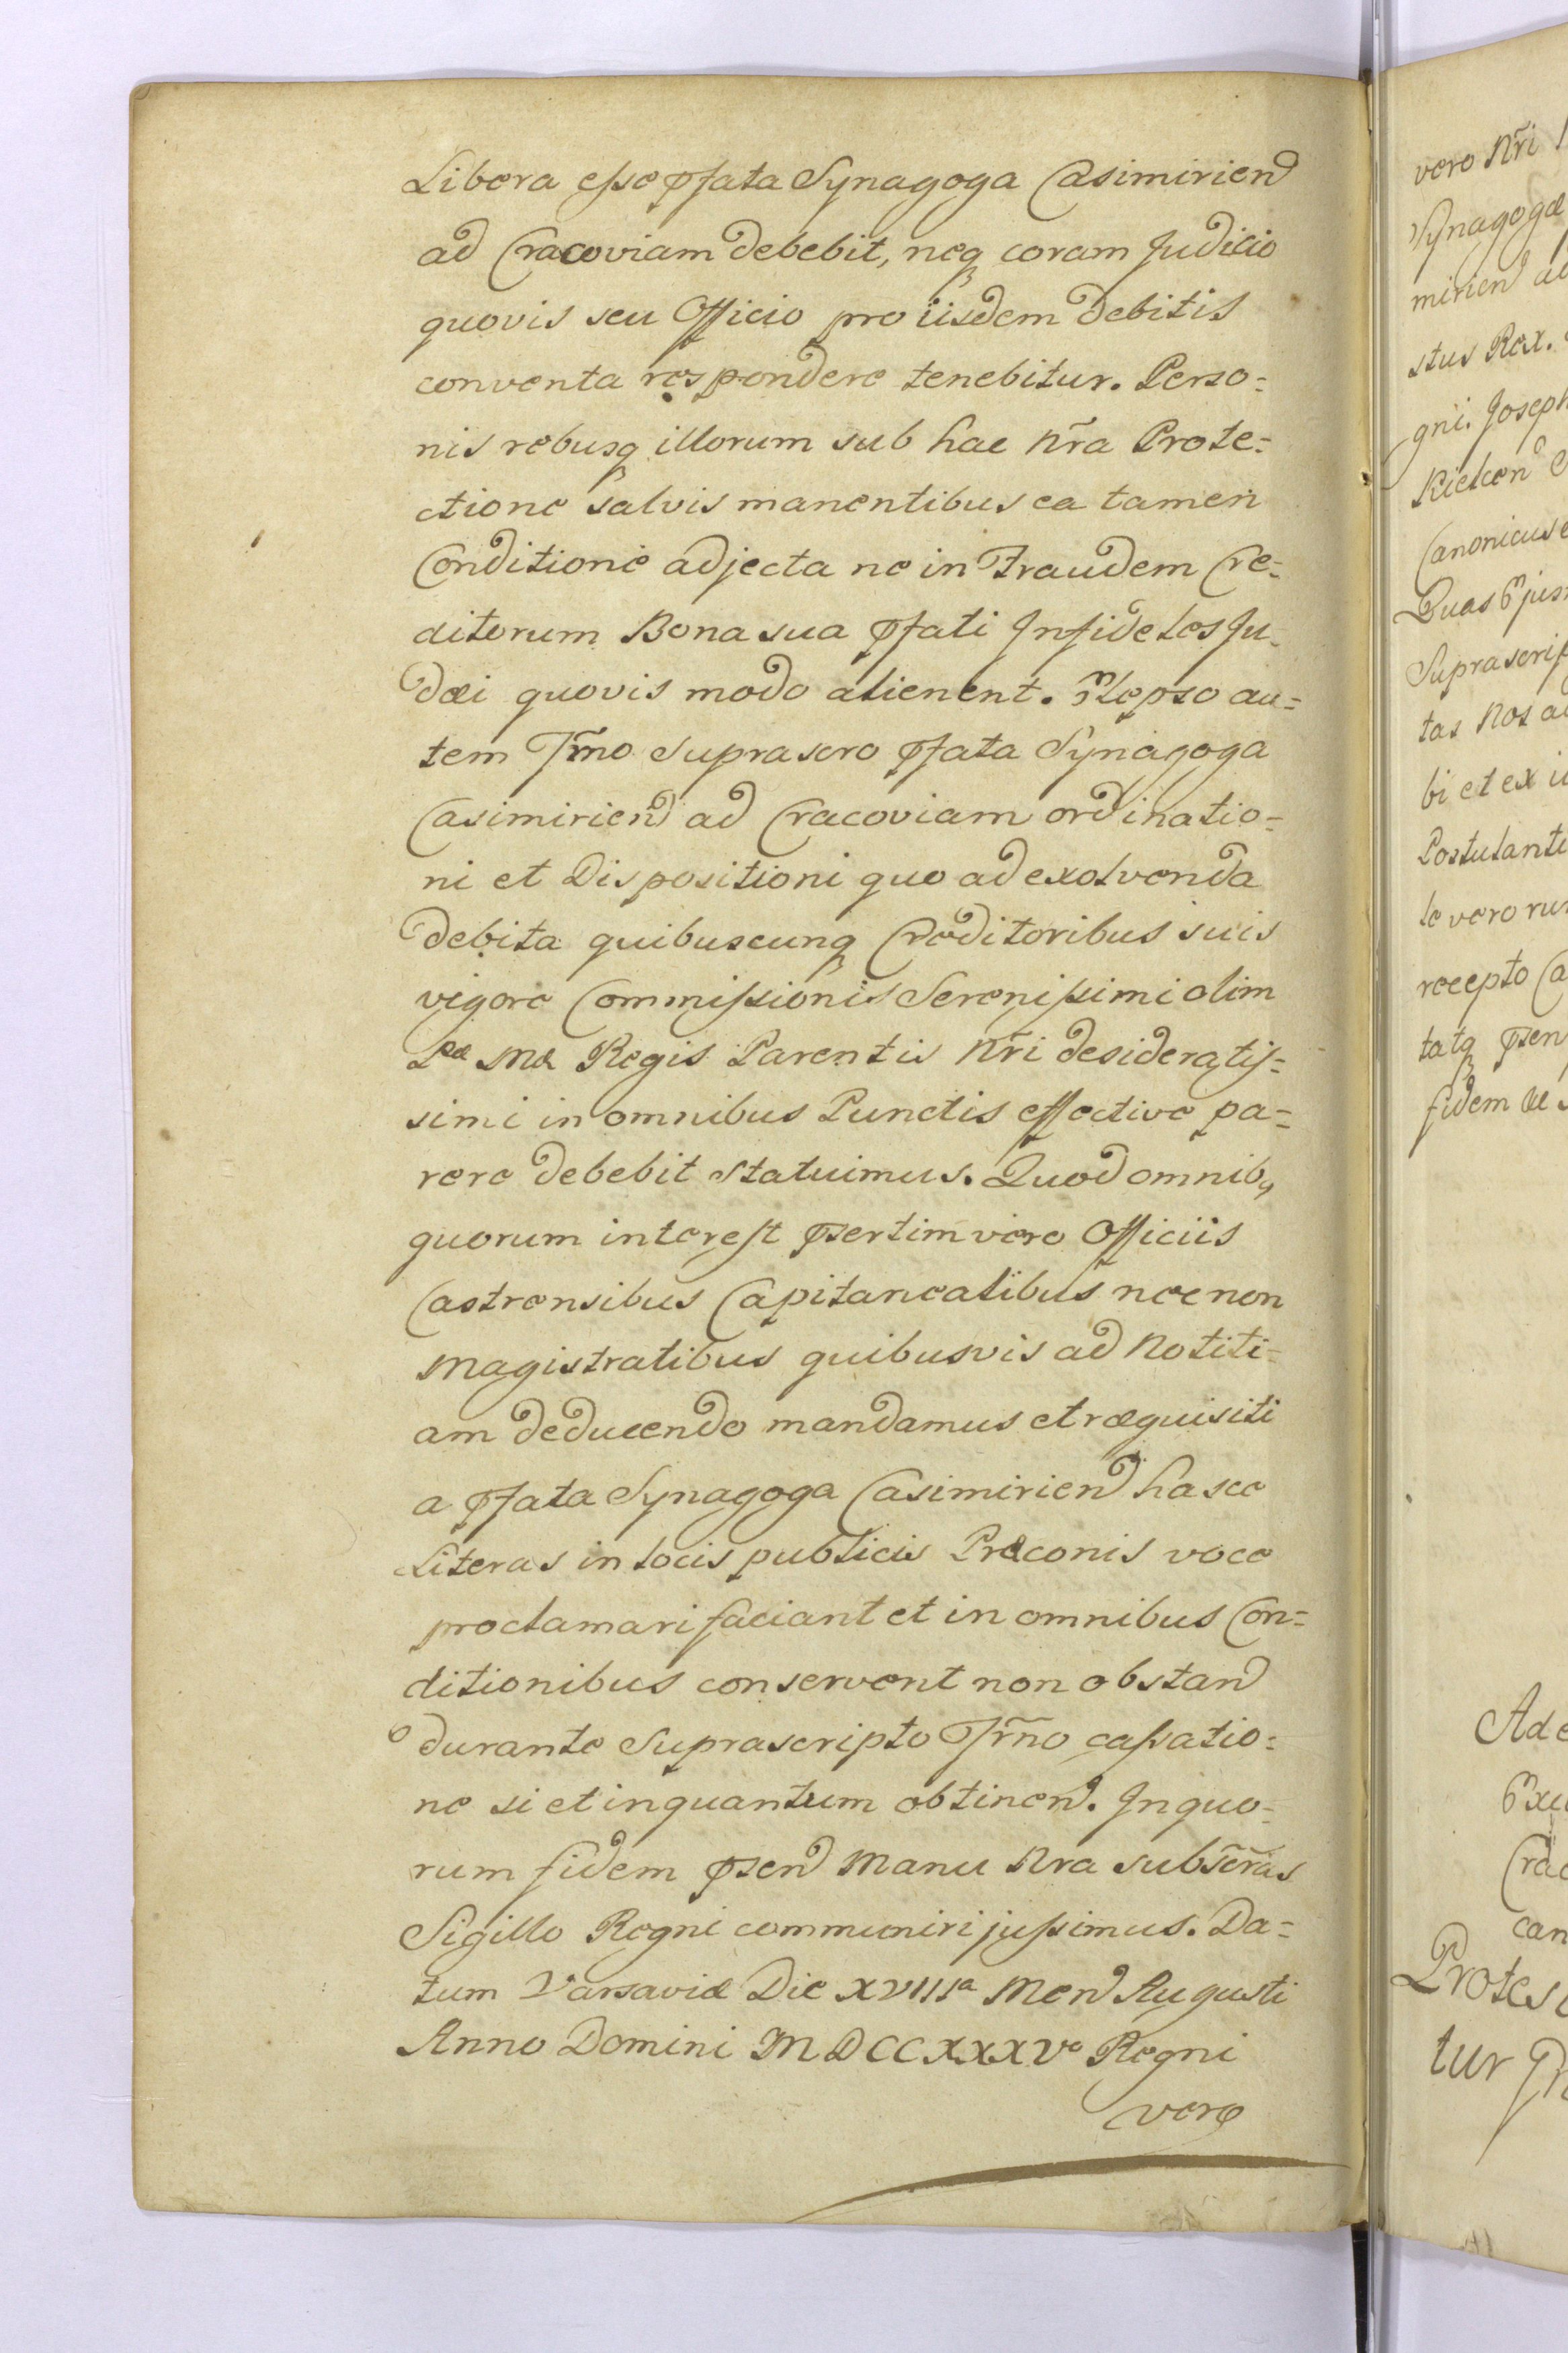 Libera esse pfata Synagoga Casimirien
ad Cracoviam debebit, neq coram Judicio
quovis seu Officio pro iisdem debitis
conventa respondere tenebitur. Perso=
nis rebusq illorum sub hac nr̃a Prote=
ctione salvis manentibus ea tamen
Conditione adjecta ne in Fraudem Cre=
ditorum Bona sua pfati Infideles Ju=
dæi quovis modo alienent. Elapso au=
tem Tr̃mo suprascro pfata Synagoga
Casimirien ad Cracoviam ordinatio=
ni et Dispositioni quo ad exolvenda
debita quibuscunq Creditoribus suis
vigore Commissionis Serenissimi olim
Pæ Mæ Regis Parentis Nr̃i desideratis=
simi in omnibus Punctis effective pa=
rere debebit statuimus. Quod omnib9
quorum interest psertim vero Officiis
Castrensibus Capitanealibus nec non
Magistratibus quibusvis ad Notiti=
am deducendo mandamus et ræquisiti
a pfata Synagoga Casimirien hasce
Literas in locis publicis Præconis voce
proclamari faciant et in omnibus Con=
ditionibus conservent non obstan
durante Suprascripto Tr̃no cassatio=
ne si et inquantum obtinen. In quo=
rum fidem psen Manu Nra subscr̃as
Sigillo Regni communiri jussimus. Da=
tum Varsaviæ Die XVIIIa Men Augusti
Anno Domini MDCCXXXVo Regni
vero
vero Nr̃i
Synagogæ
mirien
stus Rex.
gni. Joseph
Kielcen
Canonicus
Quas Ejus
Suprascrip
tas Nos
bi et ex
Postulante
le vero
recepto Ca
tatq psen
fidem
Ade
Exu
Crac
can
Protes
tur